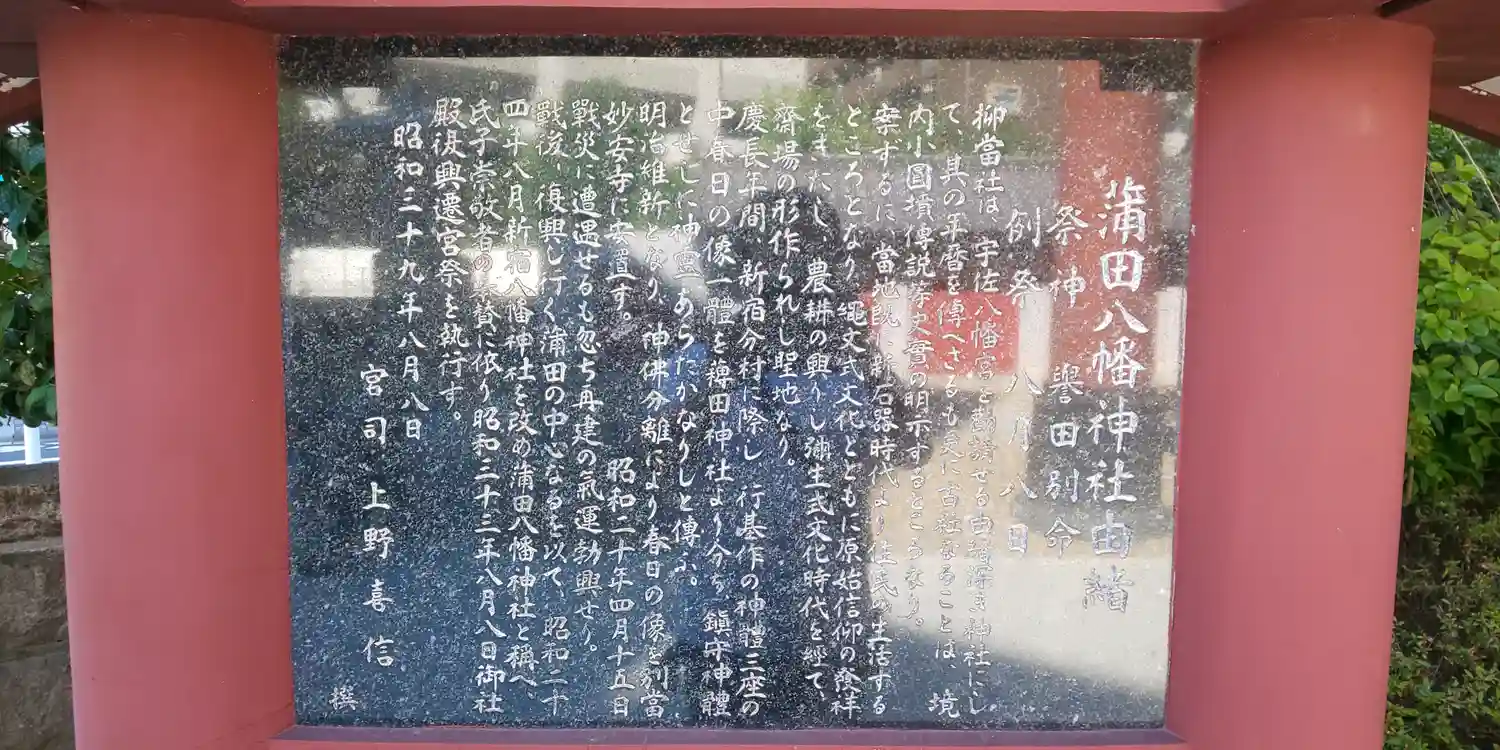 蒲田八幡神社由緒
祭神 譽田別命
例祭 八月八日
抑當社は、宇佐八幡宮を勸請せる由緒深き神社にし
て、其の年暦を傳へざるも更に古社なることは、境
内小圓墳傳説等史實の明示するところなり。
案ずるに、當地既に新石器時代より住民の生活する
ところとなり繩文式文化とともに原始信仰の發祥
をきたし、農耕の興りし彌生式文化時代を經て、
齋場の形作られし聖地なり。
慶長年間、新宿分村に際し 行基作の神體三座の
中春日の像一體を薭田神社より分ち 鎮守神體
とせしに神靈 あらたかなりしと傳ふ。
明治維新となり、神佛分離により春日の像を別當
妙安寺に安置す。 昭和二十年四月十五日
戰災に遭遇せるも忽ち再建の氣運勃興せり。
戰後、復興し行く蒲田の中心なるを以て、昭和二十
四年八月新宿八幡神社を改め蒲田八幡神社と稱へ、
氏子崇敬者の 賛に依り昭和三十三年八月八日御社
殿復興遷宮祭を執行す。
昭和三十九年八月八日
宮司 上野喜信
撰